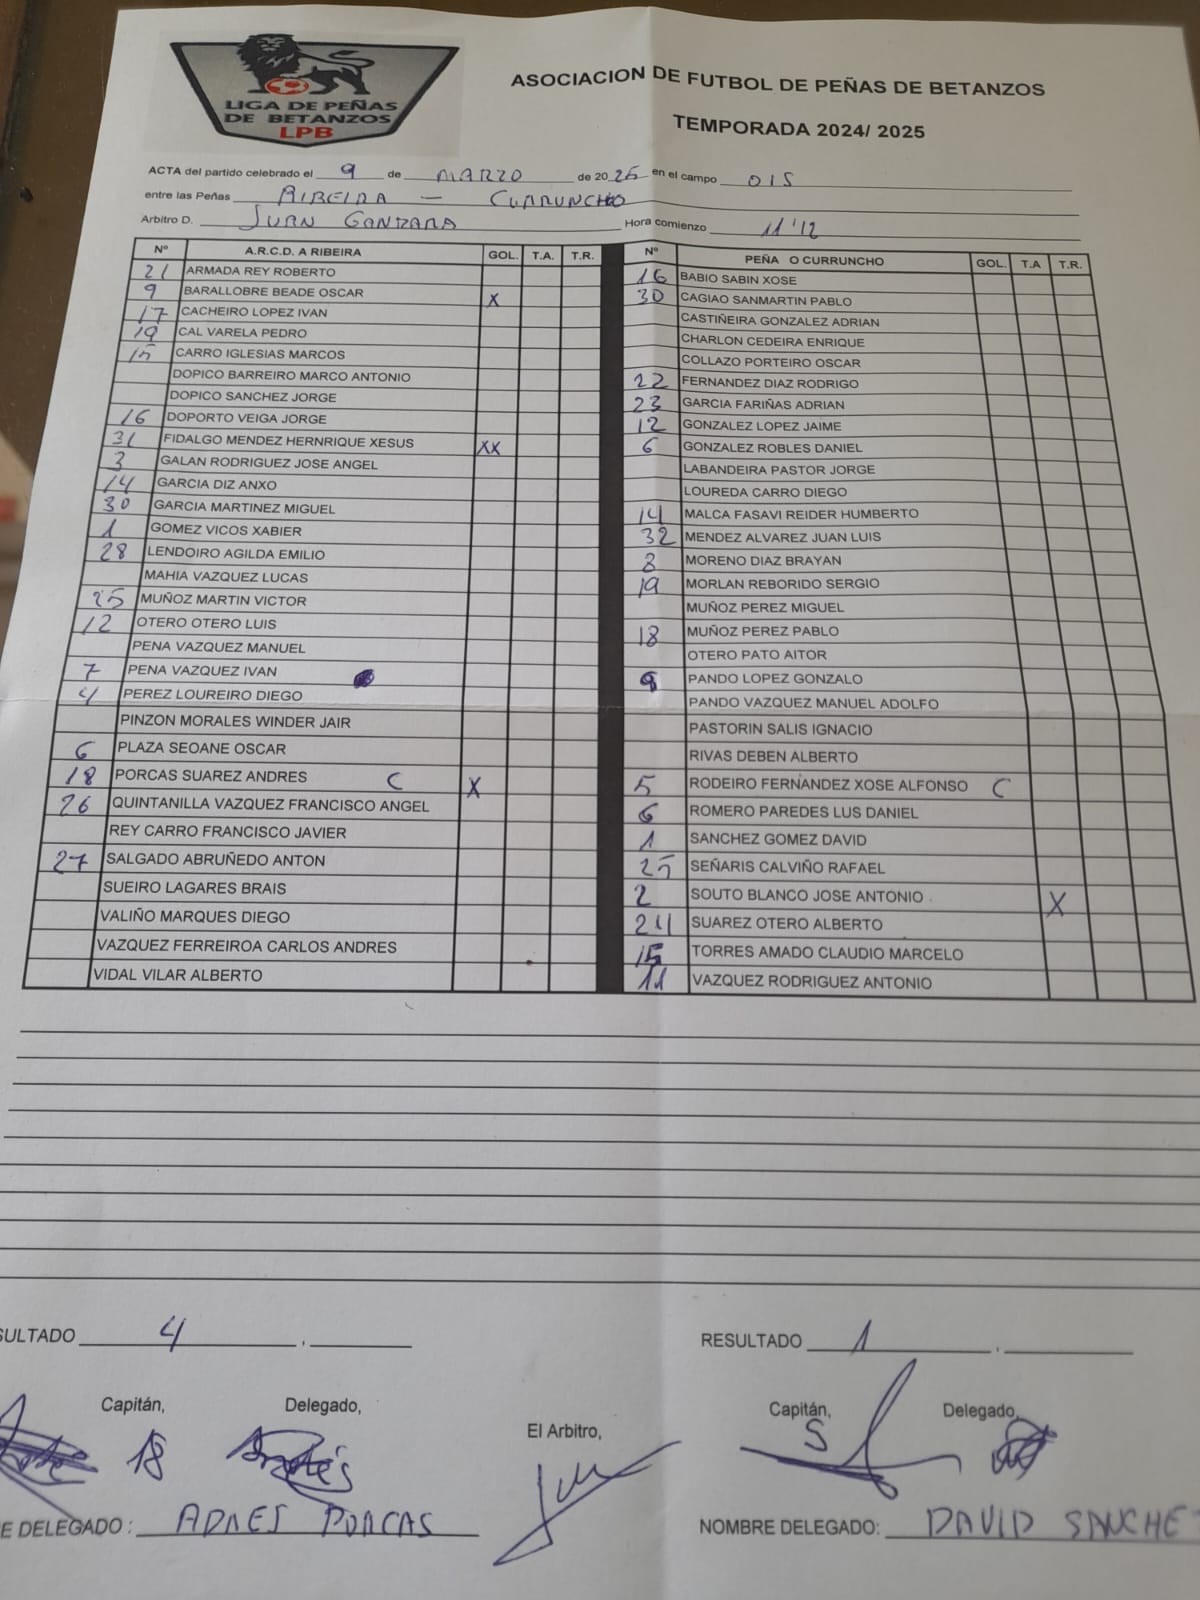 LIGA DE PEÑAS
DE BETANZOS
LPB
ASOCIACION DE FUTBOL DE PEÑAS DE BETANZOS
TEMPORADA 2024/ 2025
ACTA del partido celebrado el 9 de MARZO de 2025 en el campo OIS
entre las Peñas RIBEIRA - CURRUNCHO
Arbitro D. JUAN GANDARA Hora comienzo 11'12
Nº A.R.C.D. A RIBEIRA GOL. T.A. T.R.
21 ARMADA REY ROBERTO
9 BARALLOBRE BEADE OSCAR X
17 CACHEIRO LOPEZ IVAN
19 CAL VARELA PEDRO
15 CARRO IGLESIAS MARCOS
DOPICO BARREIRO MARCO ANTONIO
DOPICO SANCHEZ JORGE
16 DOPORTO VEIGA JORGE
31 FIDALGO MENDEZ HERNRIQUE XESUS XX
3 GALAN RODRIGUEZ JOSE ANGEL
14 GARCIA DIZ ANXO
30 GARCIA MARTINEZ MIGUEL
1 GOMEZ VICOS XABIER
28 LENDOIRO AGILDA EMILIO
MAHIA VAZQUEZ LUCAS
25 MUÑOZ MARTIN VICTOR
12 OTERO OTERO LUIS
PENA VAZQUEZ MANUEL
7 PENA VAZQUEZ IVAN
4 PEREZ LOUREIRO DIEGO
PINZON MORALES WINDER JAIR
6 PLAZA SEOANE OSCAR
18 PORCAS SUAREZ ANDRES C X
26 QUINTANILLA VAZQUEZ FRANCISCO ANGEL
REY CARRO FRANCISCO JAVIER
27 SALGADO ABRUÑEDO ANTON
SUEIRO LAGARES BRAIS
VALIÑO MARQUES DIEGO
VAZQUEZ FERREIROA CARLOS ANDRES
VIDAL VILAR ALBERTO
Nº PEÑA O CURRUNCHO GOL. T.A T.R.
16 BABIO SABIN XOSE
30 CAGIAO SANMARTIN PABLO
CASTIÑEIRA GONZALEZ ADRIAN
CHARLON CEDEIRA ENRIQUE
COLLAZO PORTEIRO OSCAR
22 FERNANDEZ DIAZ RODRIGO
23 GARCIA FARIÑAS ADRIAN
12 GONZALEZ LOPEZ JAIME
6 GONZALEZ ROBLES DANIEL
LABANDEIRA PASTOR JORGE
LOUREDA CARRO DIEGO
14 MALCA FASAVI REIDER HUMBERTO
32 MENDEZ ALVAREZ JUAN LUIS
8 MORENO DIAZ BRAYAN
19 MORLAN REBORIDO SERGIO
MUÑOZ PEREZ MIGUEL
18 MUÑOZ PEREZ PABLO
OTERO PATO AITOR
PANDO LOPEZ GONZALO
PANDO VAZQUEZ MANUEL ADOLFO
PASTORIN SALIS IGNACIO
RIVAS DEBEN ALBERTO
5 RODEIRO FERNANDEZ XOSE ALFONSO C
6 ROMERO PAREDES LUS DANIEL
1 SANCHEZ GOMEZ DAVID
25 SEÑARIS CALVIÑO RAFAEL
2 SOUTO BLANCO JOSE ANTONIO X
24 SUAREZ OTERO ALBERTO
15 TORRES AMADO CLAUDIO MARCELO
11 VAZQUEZ RODRIGUEZ ANTONIO
SULTADO 4
RESULTADO 1
Capitán, Delegado,
El Arbitro,
Capitán, Delegado,
18
5
E DELEGADO: ADNES PORCAS
NOMBRE DELEGADO: DAVID SANCHEZ